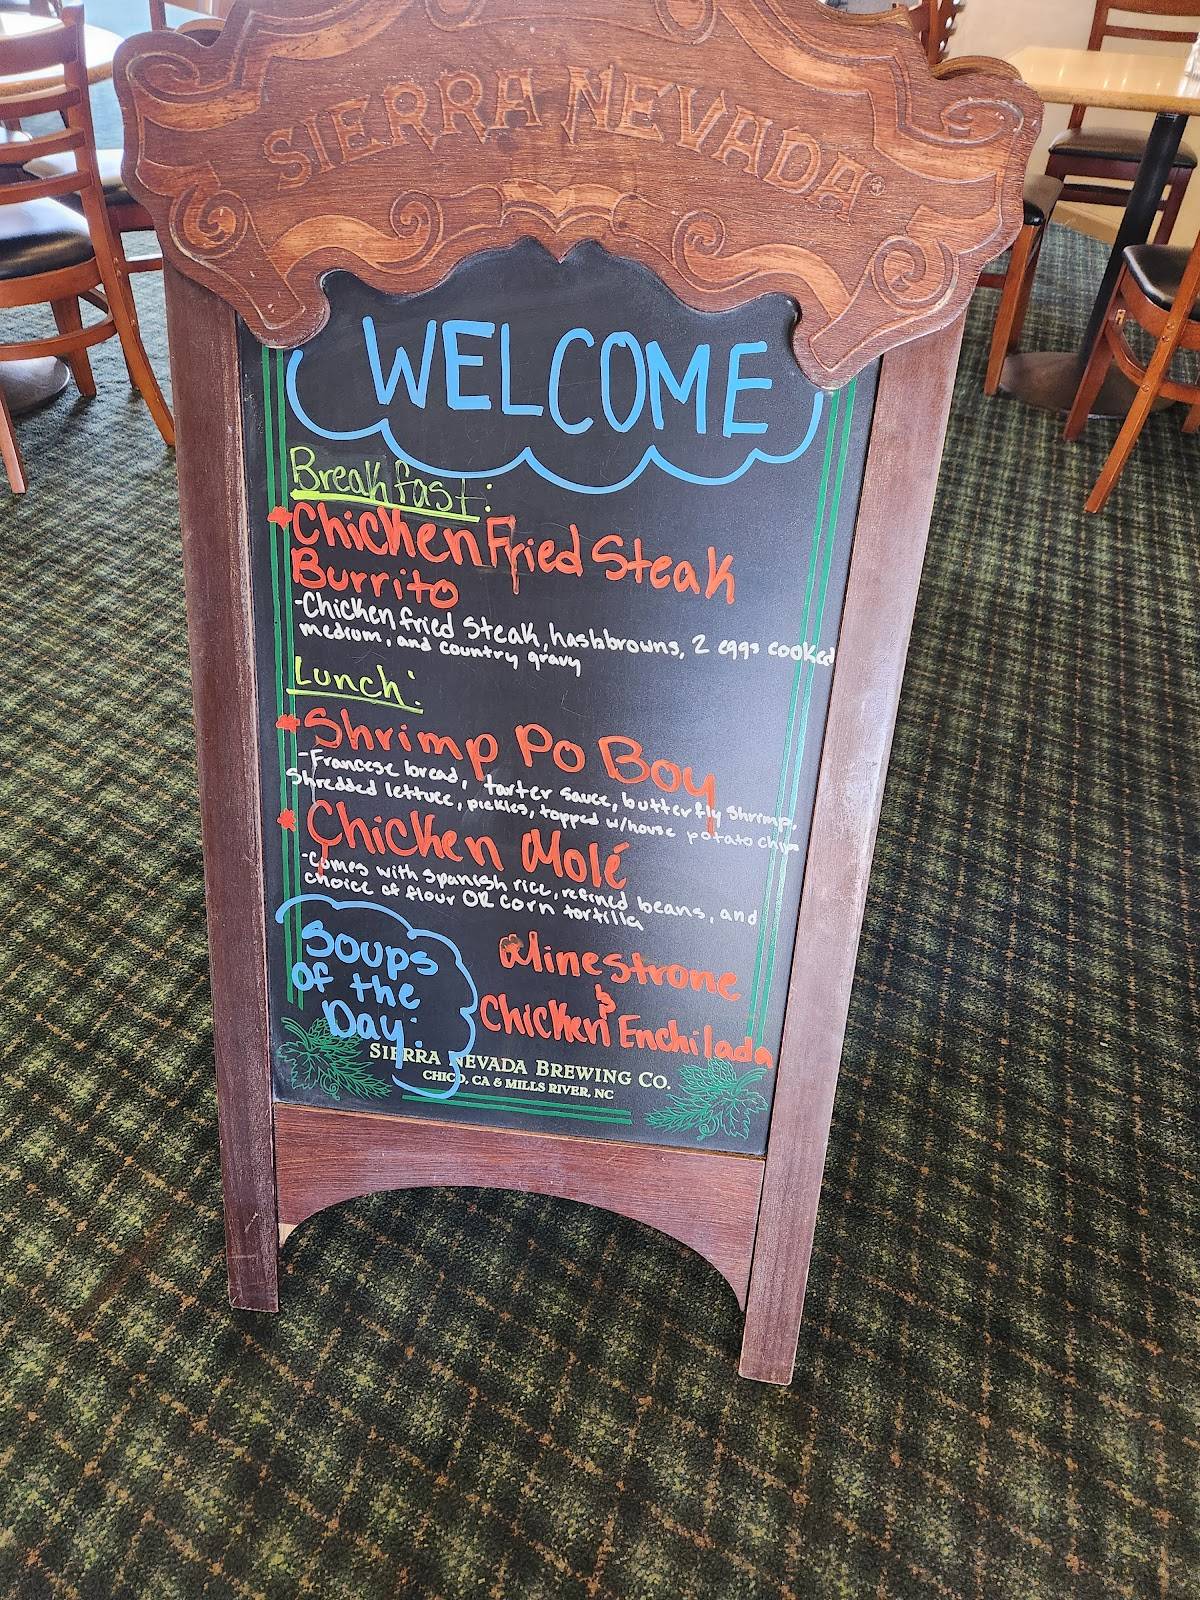 SIERRA NEVADA®
WELCOME
Breakfast:
*Chicken Fried Steak
Burrito
-Chicken fried steak, hashbrowns, 2 eggs cooked
medium, and country gravy
Lunch:
*Shrimp Po Boy
-Francese bread, tarter sauce, butterfly shrimp,
Shredded lettuce, pickles, topped w/house potato chips
*Chicken Molé
-comes with spanish rice, refined beans, and
choice of flour OR corn tortilla
Soups
of the
Day:
Minestrone
&
Chicken Enchilada
SIERRA NEVADA BREWING CO.
CHICO, CA & MILLS RIVER, NC